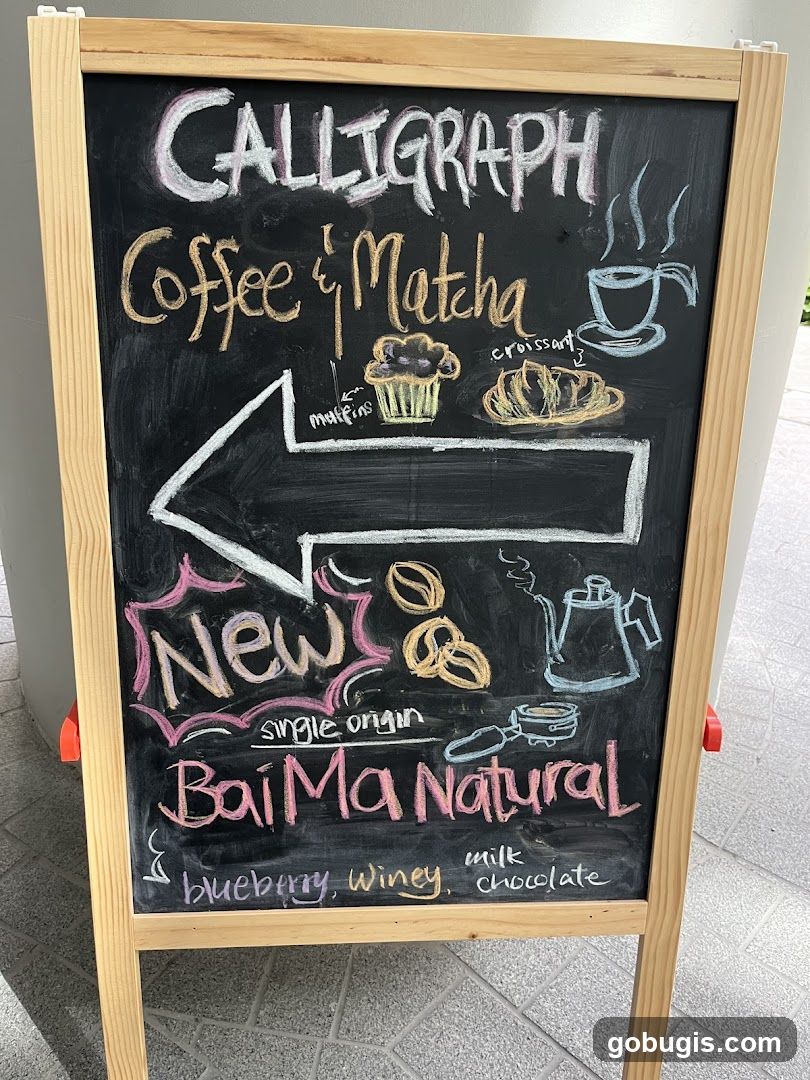 CALLIGRAPH
Coffee & Matcha
croissant
muffins
New
single origin
BaiMa Natural
blueberry, winey, milk chocolate
gobugis.com